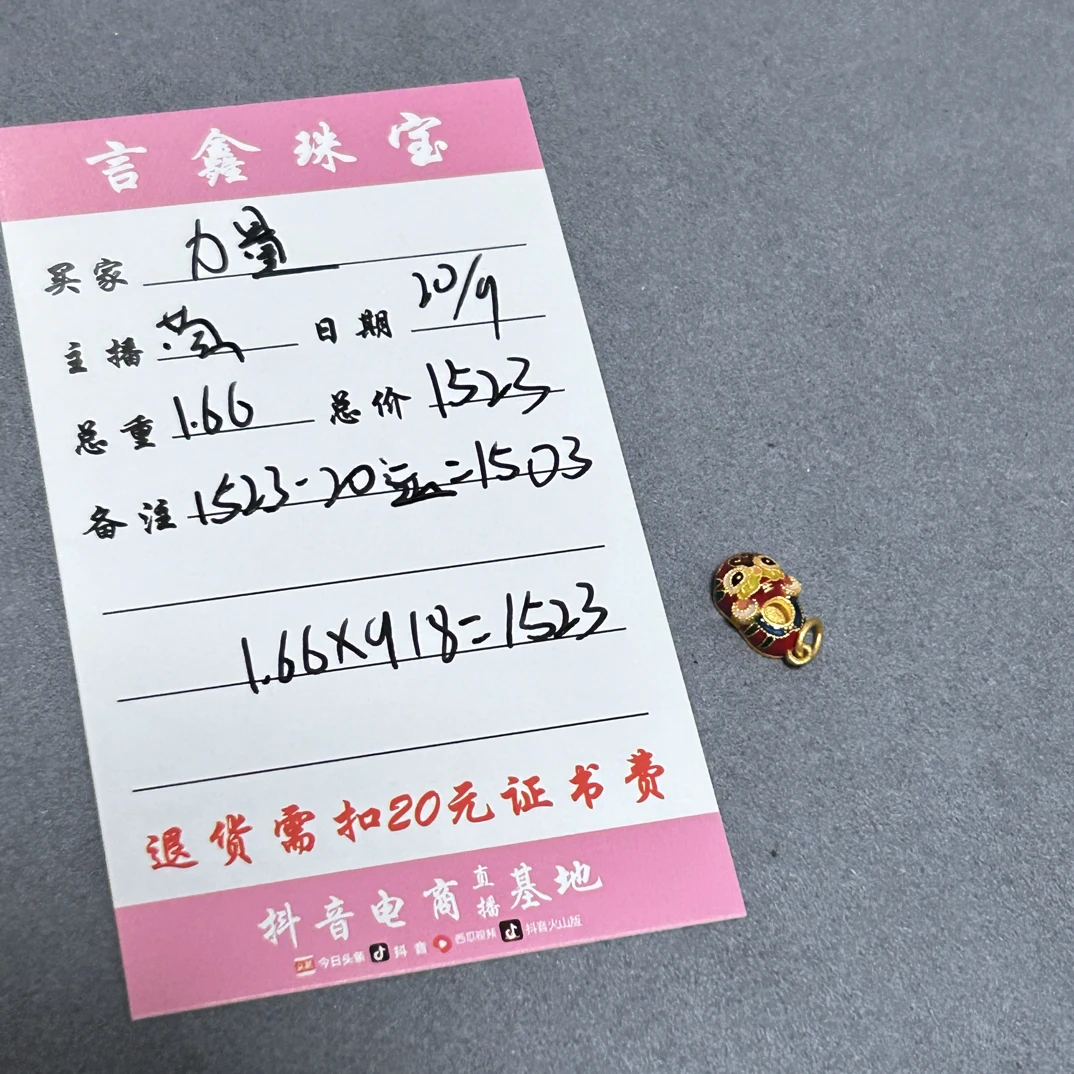 言鑫珠宝
买家 力量
主播 日期 20/9
总重 1.66 总价 1523
备注 1523-20元=1503
1.66×918=1523
退货需扣20元证书费
抖音电商直播基地
今日头条 抖音 西瓜视频 抖音火山版